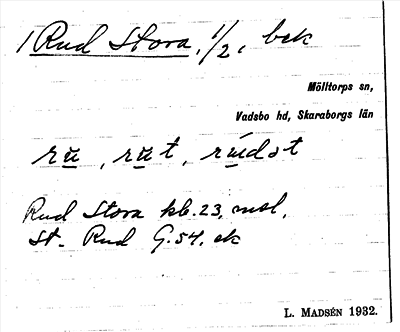 1 Rud Stora, 1/2, bek
Mölltorps sn,
Vadsbo hd, Skaraborgs län
rʉ, rʉt, rʉdət
Rud Stora kb. 23, msl,
St. Rud G. 54. ek
L. MADSÉN 1932.